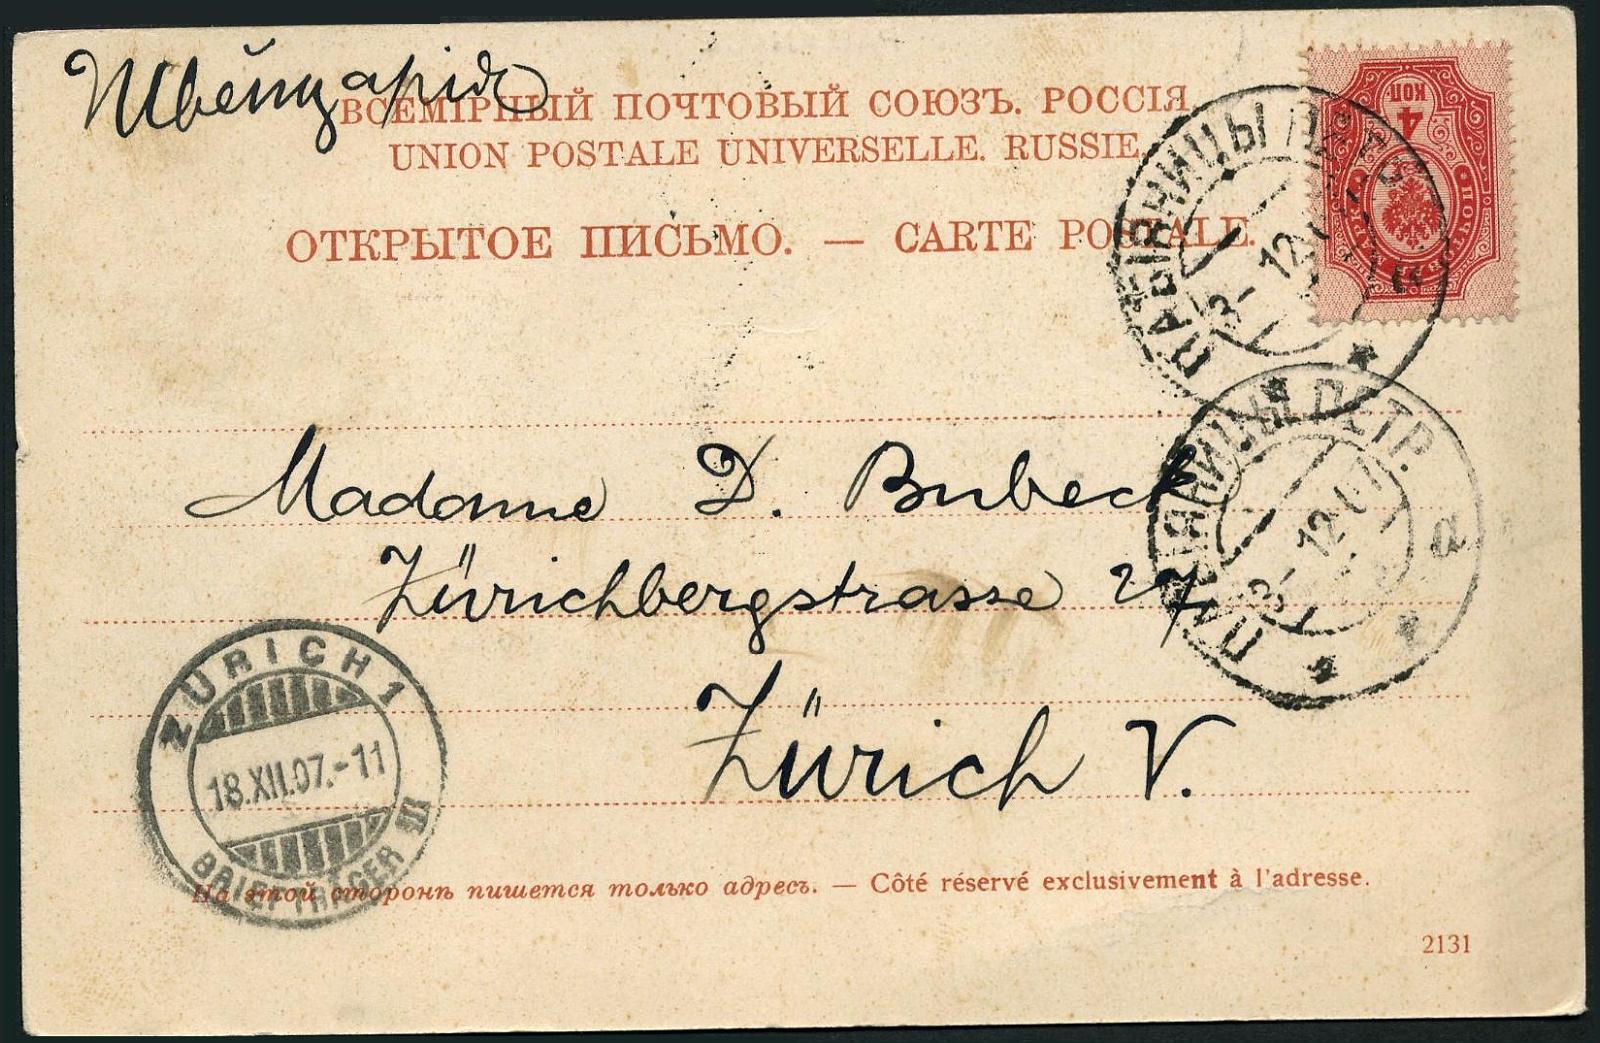 Швейцарія
ВСЕМІРНЫЙ ПОЧТОВЫЙ СОЮЗЪ. РОССІЯ
UNION POSTALE UNIVERSELLE. RUSSIE.
ОТКРЫТОЕ ПИСЬМО. — CARTE POSTALE.
4
КОП
3-12
ПЕТР.
3-12 07
а
Madame D. Bubeck
Zürichbergstrasse 27
Zürich V.
ZÜRICH 1
18.XII.07.-11
BRIEFTRÄGER III
На этой сторонѣ пишется только адресъ. — Côté réservé exclusivement à l'adresse.
2131